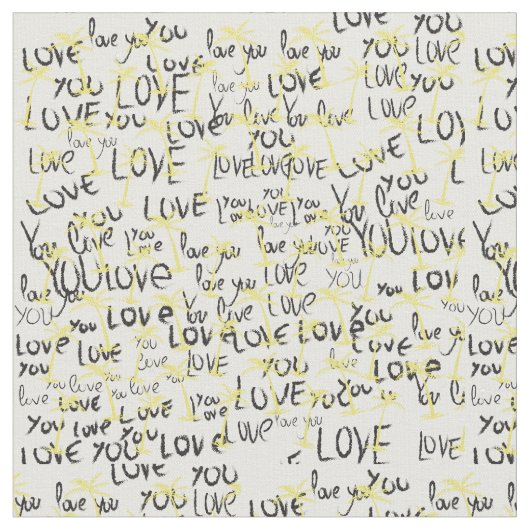 LOVE love you love you YOU LOVE
YOU LOVE YOU LOVE
LOVE YOU LOVE love you You live You love LOVE
love you LOVE YOU LOVE
LOVE LOVE LOVE LOVE LOVE LOVE
LOVE YOU
YOU LOVE YOU LOVE LOVE YOU LOVE You live love
You live YOU LOVE love you love you YOU LOVE YOU LOVE
YOU LOVE love you LOVE YOU LOVE
love you You live LOVE YOU
YOU YOU LOVE LOVE YOU love you
LOVE LOVE YOU LOVE LOVE LOVE LOVE
YOU love LOVE love LOVE
love YOU love YOU love YOU YOU LOVE LOVE YOU You live
YOU LOVE LOVE YOU LOVE
YOU LOVE LOVE love you LOVE
LOVE YOU LOVE LOVE LOVE
LOVE YOU
love you love you YOU LOVE love you YOU